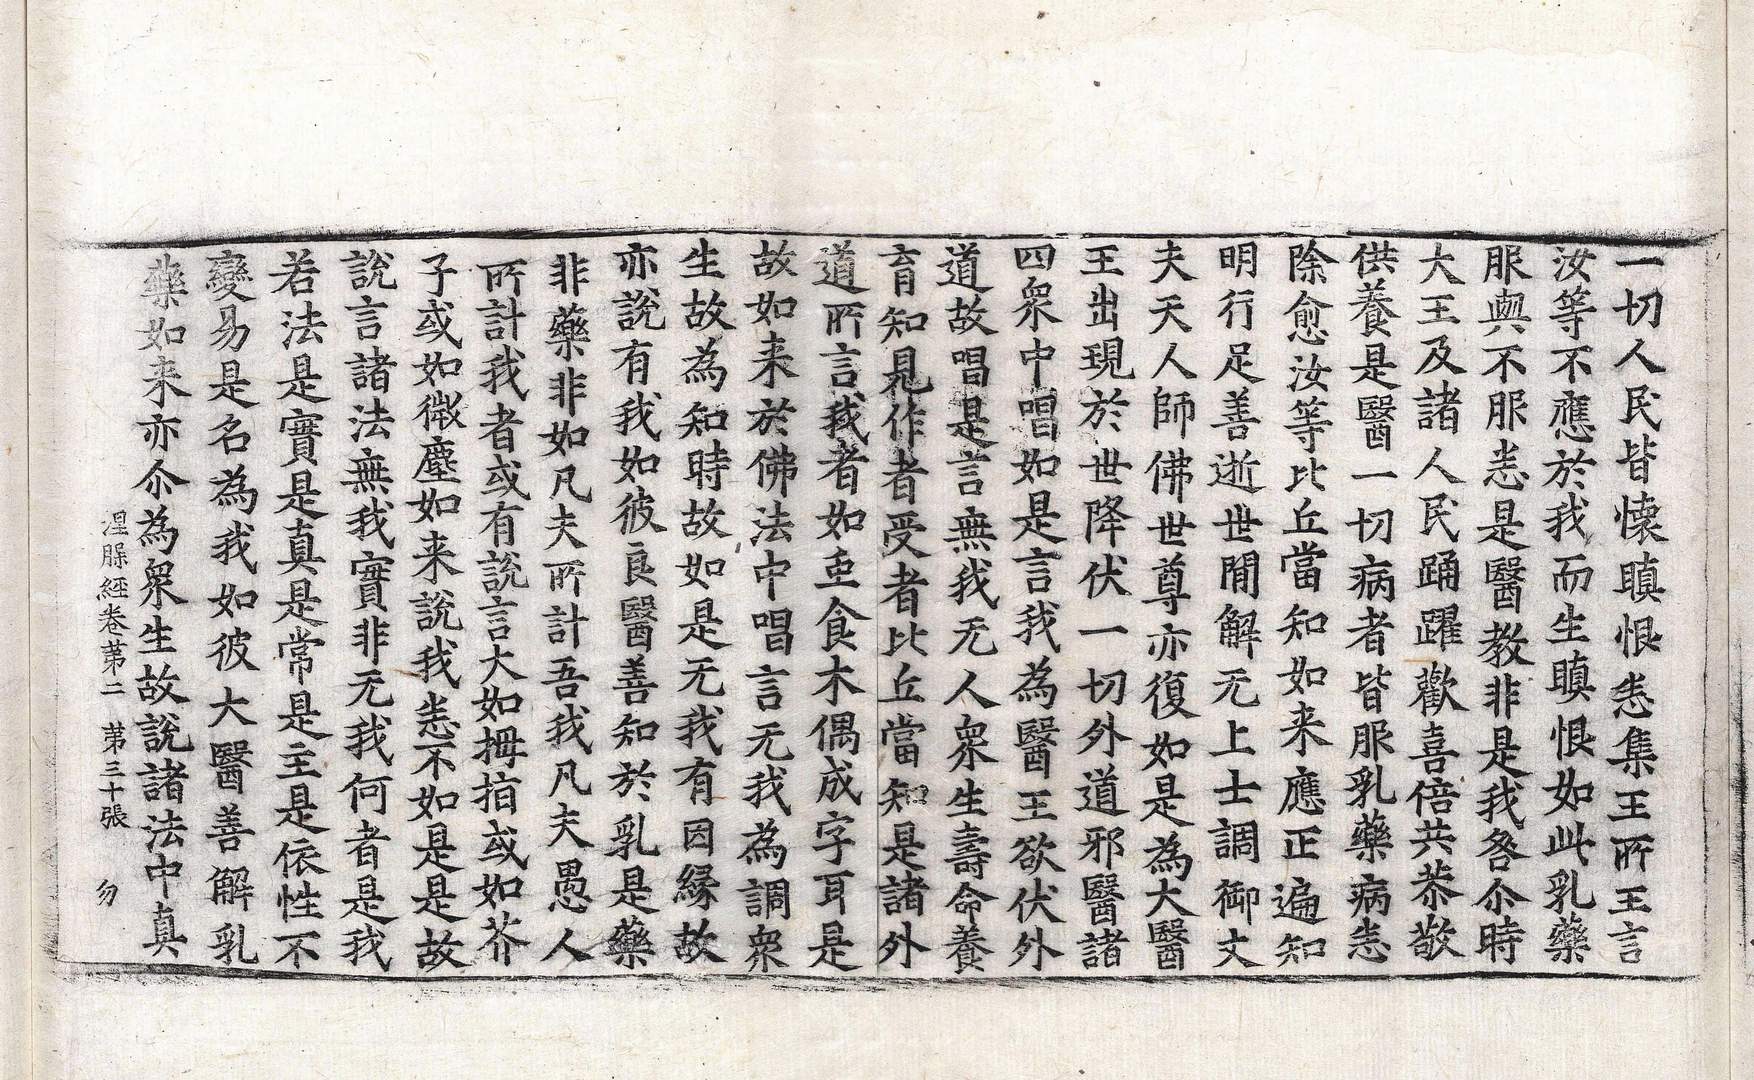 一切人民皆懷瞋恨悉集王所王言
汝等不應於我而生瞋恨如此乳藥
服與不服悉是醫教非是我咎尒時
大王及諸人民踊躍歡喜倍共恭敬
供養是醫一切病者皆服乳藥病悉
除愈汝等比丘當知如来應正遍知
明行足善逝世閒解无上士調御丈
夫天人師佛世尊亦復如是為大醫
王出現於世降伏一切外道邪醫諸
四衆中唱如是言我為醫王欲伏外
道故唱是言無我无人衆生壽命養
育知見作者受者比丘當知是諸外
道所言我者如䖝食木偶成字耳是
故如来於佛法中唱言无我為調衆
生故為知時故如是无我有因縁故
亦說有我如彼良醫善知於乳是藥
非藥非如凡夫所計吾我凡夫愚人
所計我者或有說言大如拇指或如芥
子或如微塵如来說我悉不如是是故
說言諸法無我實非无我何者是我
若法是實是真是常是主是依性不
變易是名為我如彼大醫善解乳
藥如来亦尒為衆生故說諸法中真
涅槃経卷第二 第三十張 勿